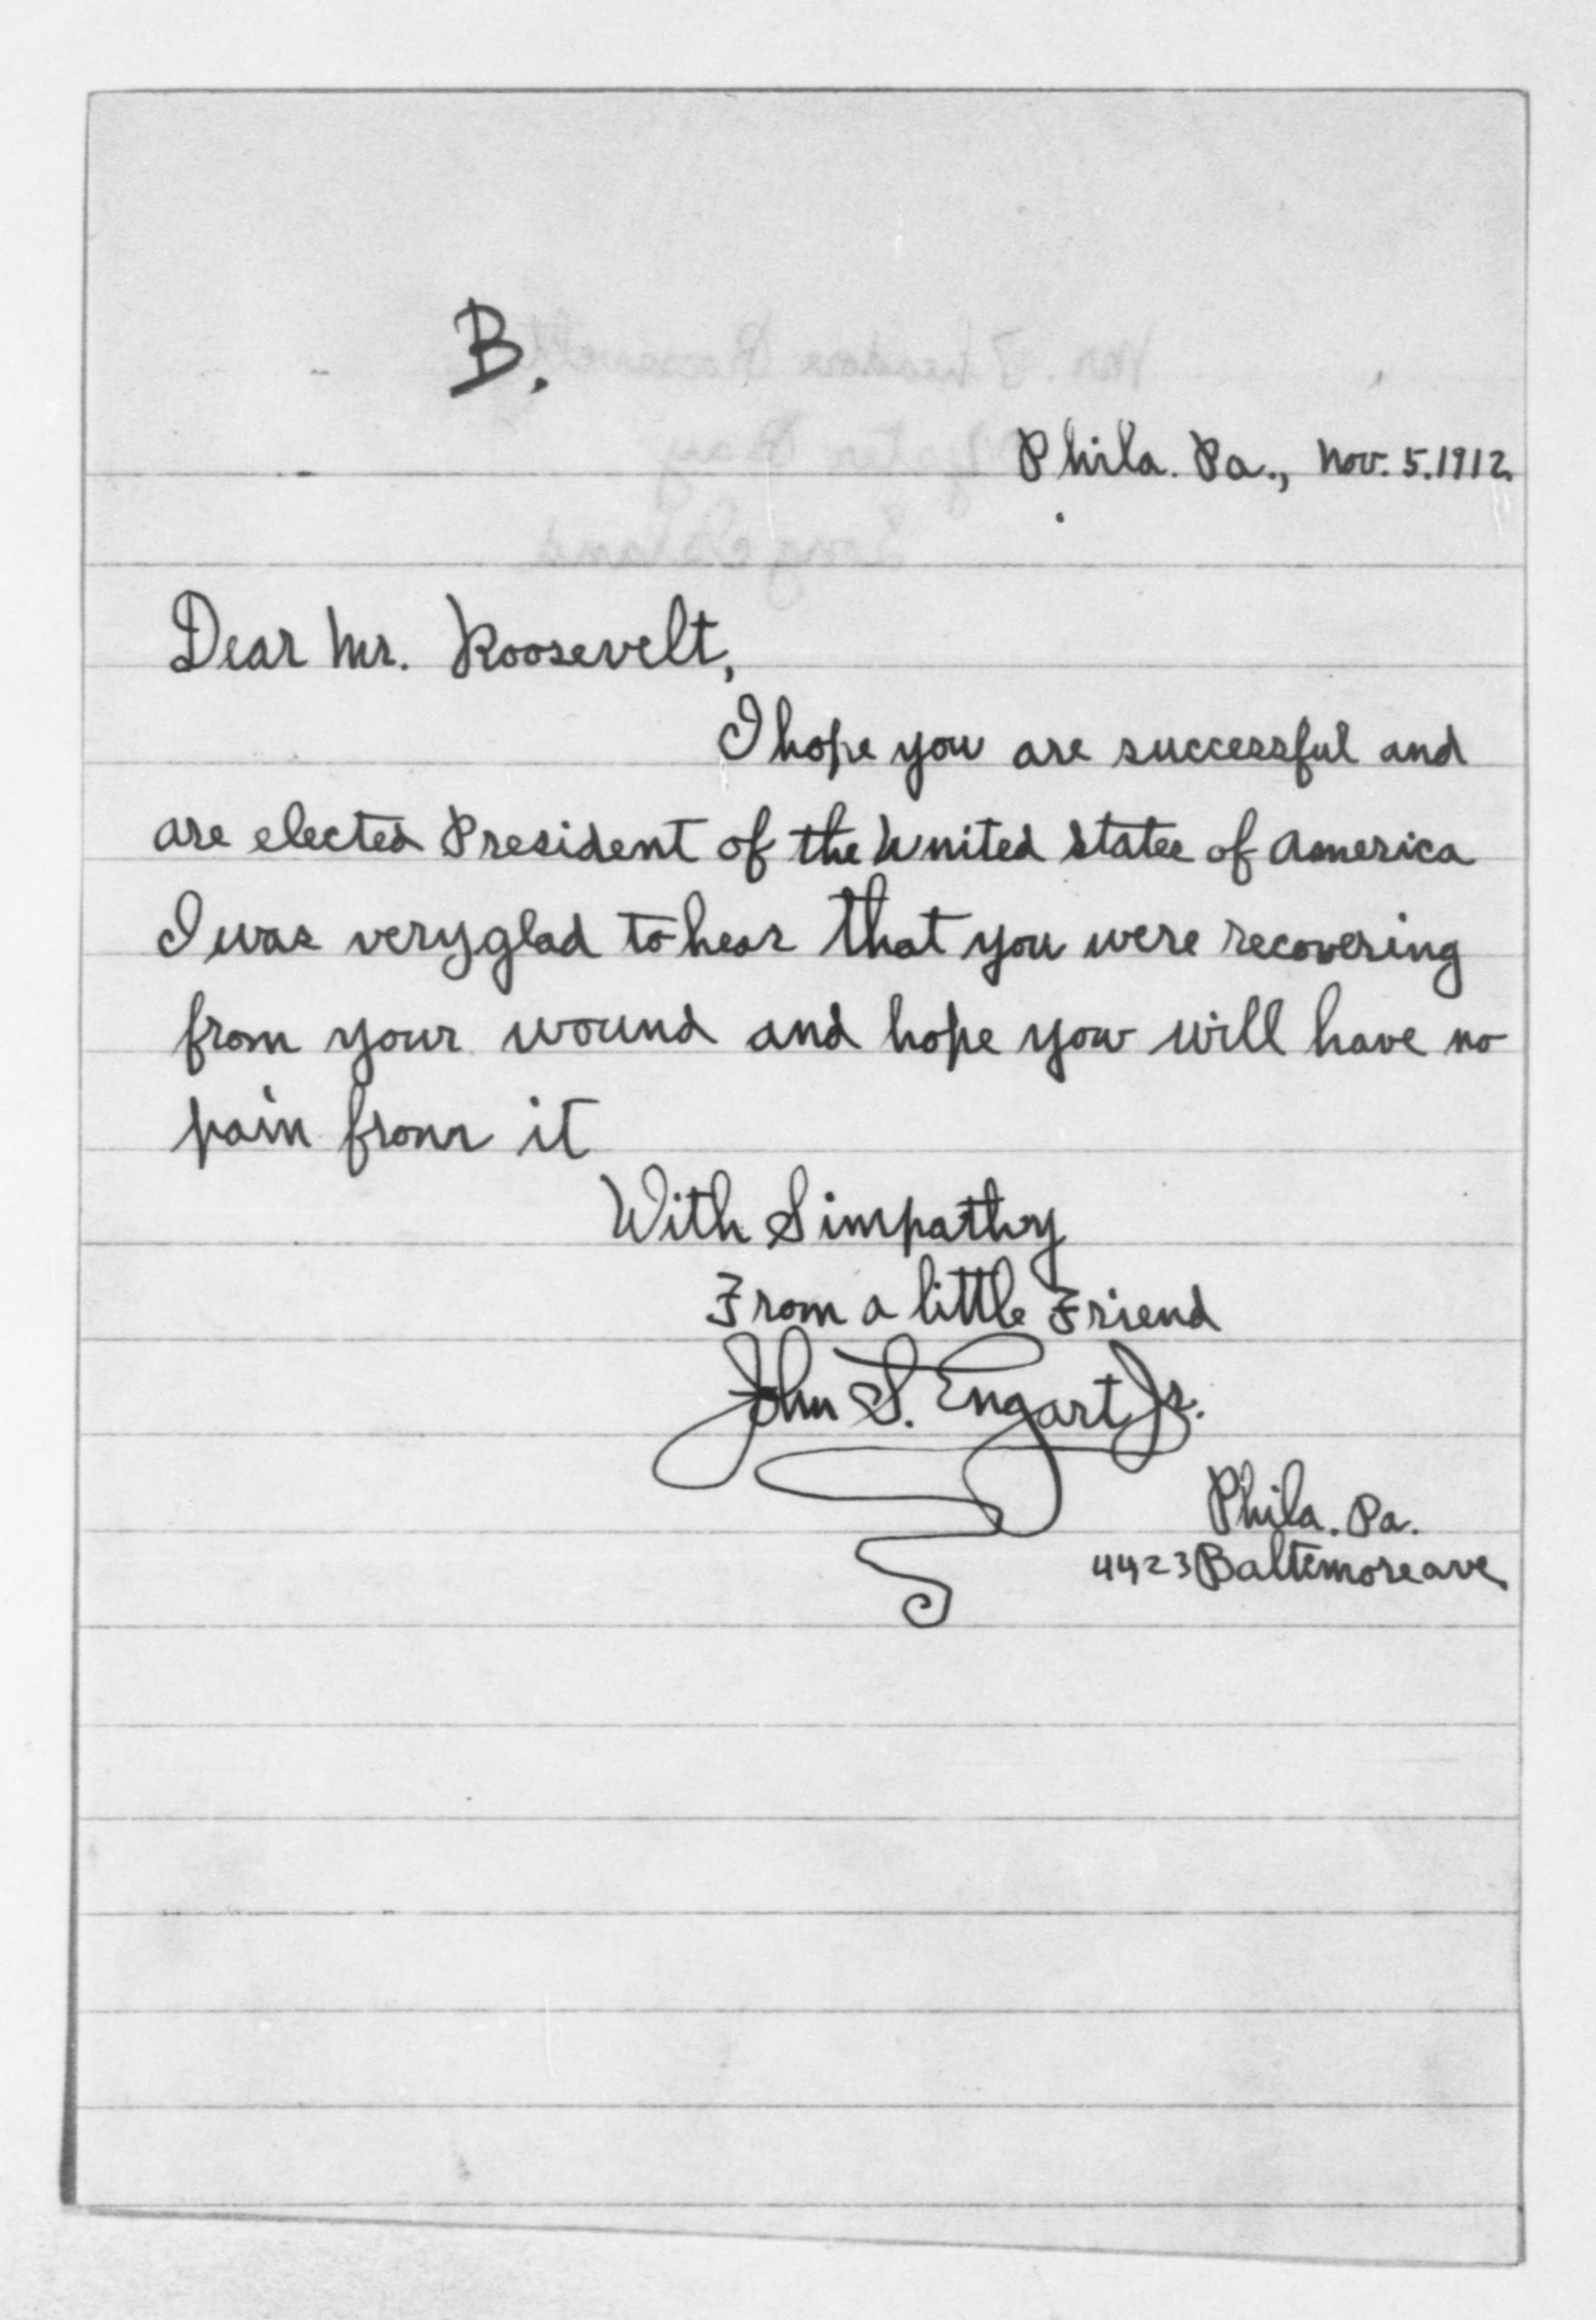 B.
Phila. Pa., Nov. 5. 1912.
Dear Mr. Roosevelt,
I hope you are successful and
are elected President of the United States of America
I was very glad to hear that you were recovering
from your wound and hope you will have no
pain from it
With Simpathy
From a little Friend
John S. Engart Jr.
Phila. Pa.
4423 Baltemore ave.